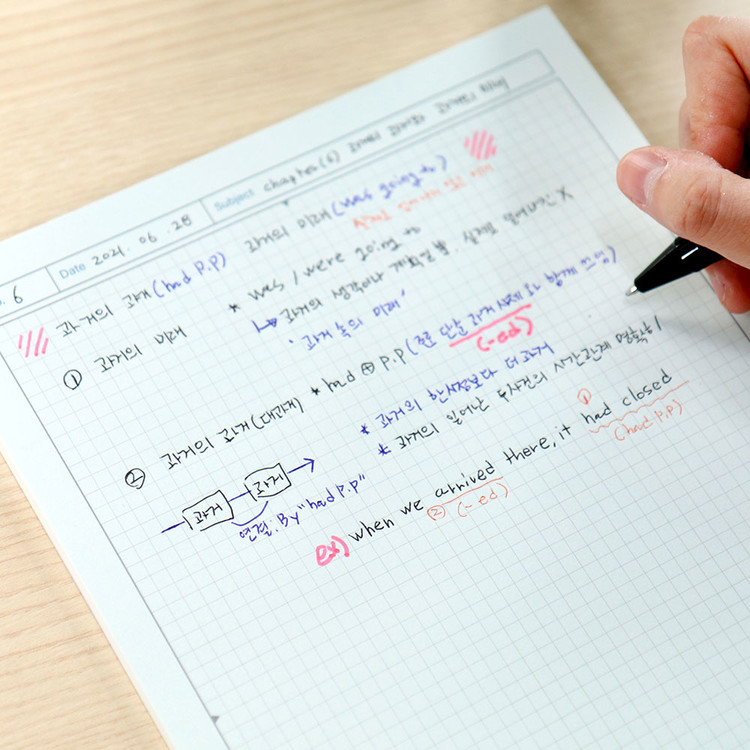 6 Date 2021. 06. 28 Subject chapter(6) 과거의 과거와 과거의 미래
과거의 과거(had P.P) 과거의 미래(was going to)
① 과거의 미래 * was / were going to
과거의 생각이나 계획을 말함. 실제로 일어나는건 X
'과거 속의 미래'
② 과거의 과거(대과거) * had ⊕ P.P (주로 단순 과거 시제와 함께 쓰임)
(-ed)
* 과거의 한시점보다 더 과거
* 과거의 일어난 두사건의 시간관계 명확히!
과거 과거
연결. By "had P.P"
ex) when we arrived there, it had closed
② (-ed) ① (had P.P)